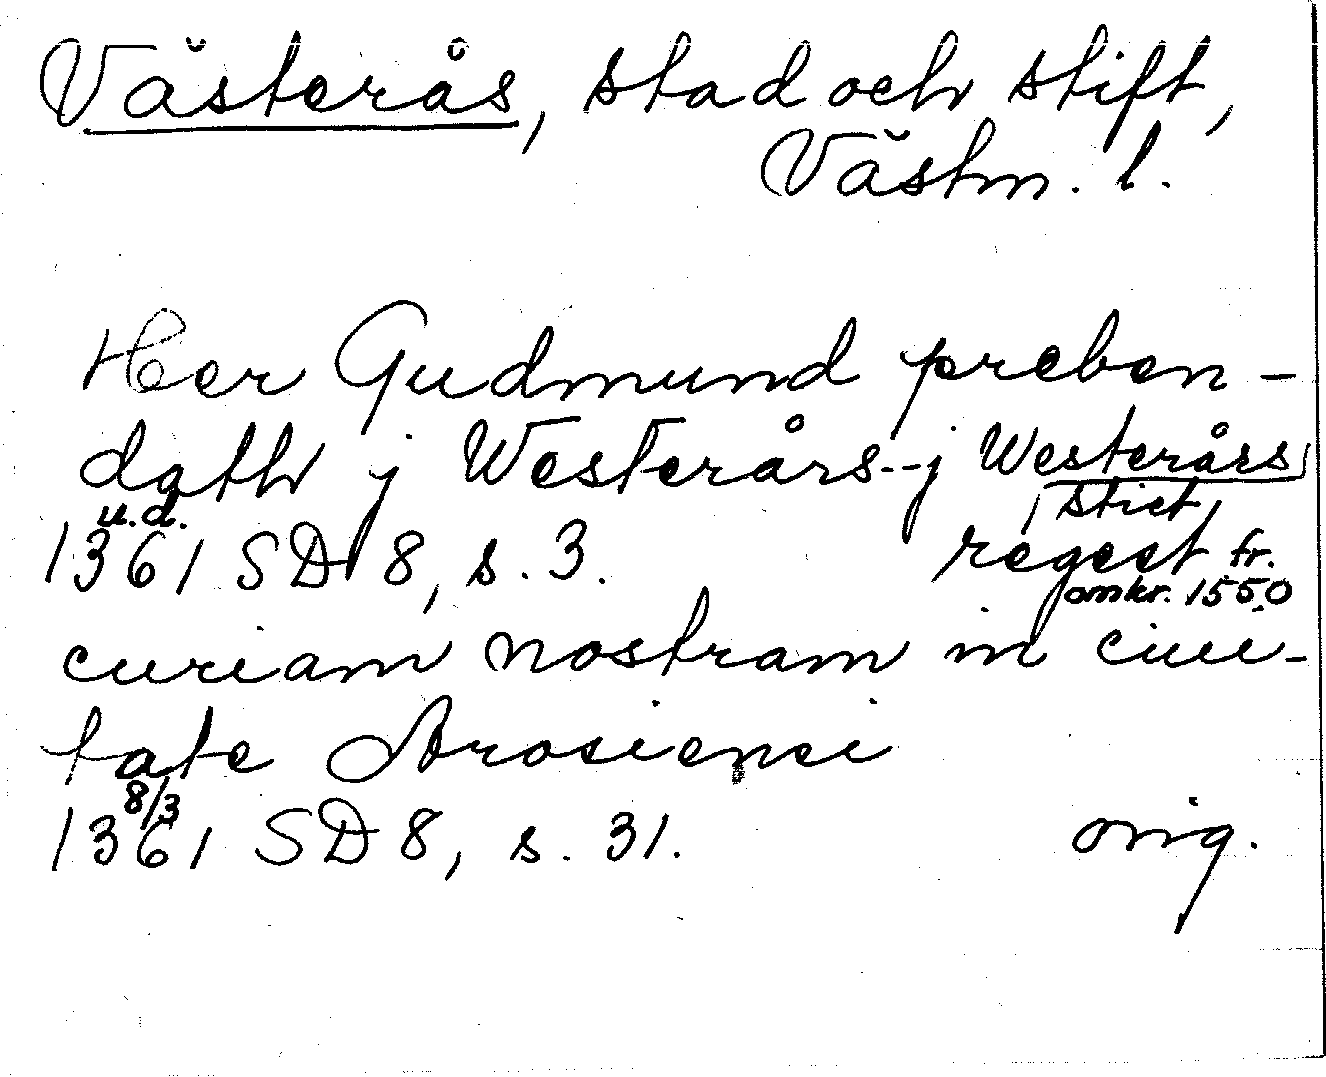 Västerås, stad och stift,
Västm. l.
Her Gudmund preben-
dath j Westerårs--j Westerårs
stict
u.d.
1361 SD 8, s. 3. regest fr.
omkr. 1550
curiam nostram in ciui-
tate Arosiensi
8/3
1361 SD 8, s. 31. orig.